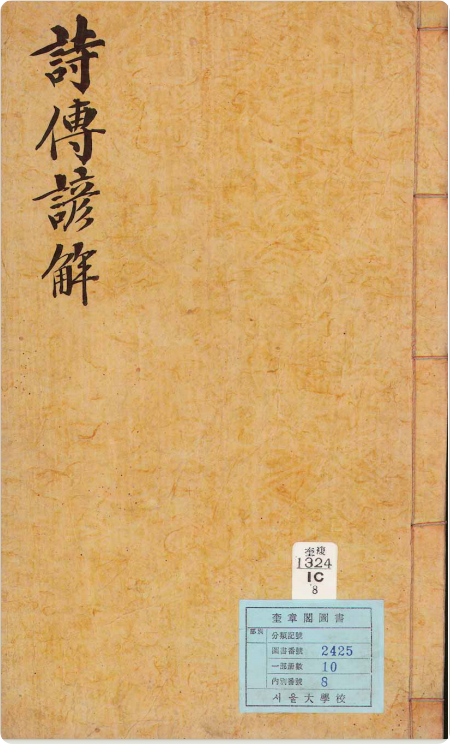 詩傳諺解
奎複
1324
1C
8
奎章閣圖書
部族
分類記號
圖書番號 2425
一部冊數 10
內別番號 8
서울大學校